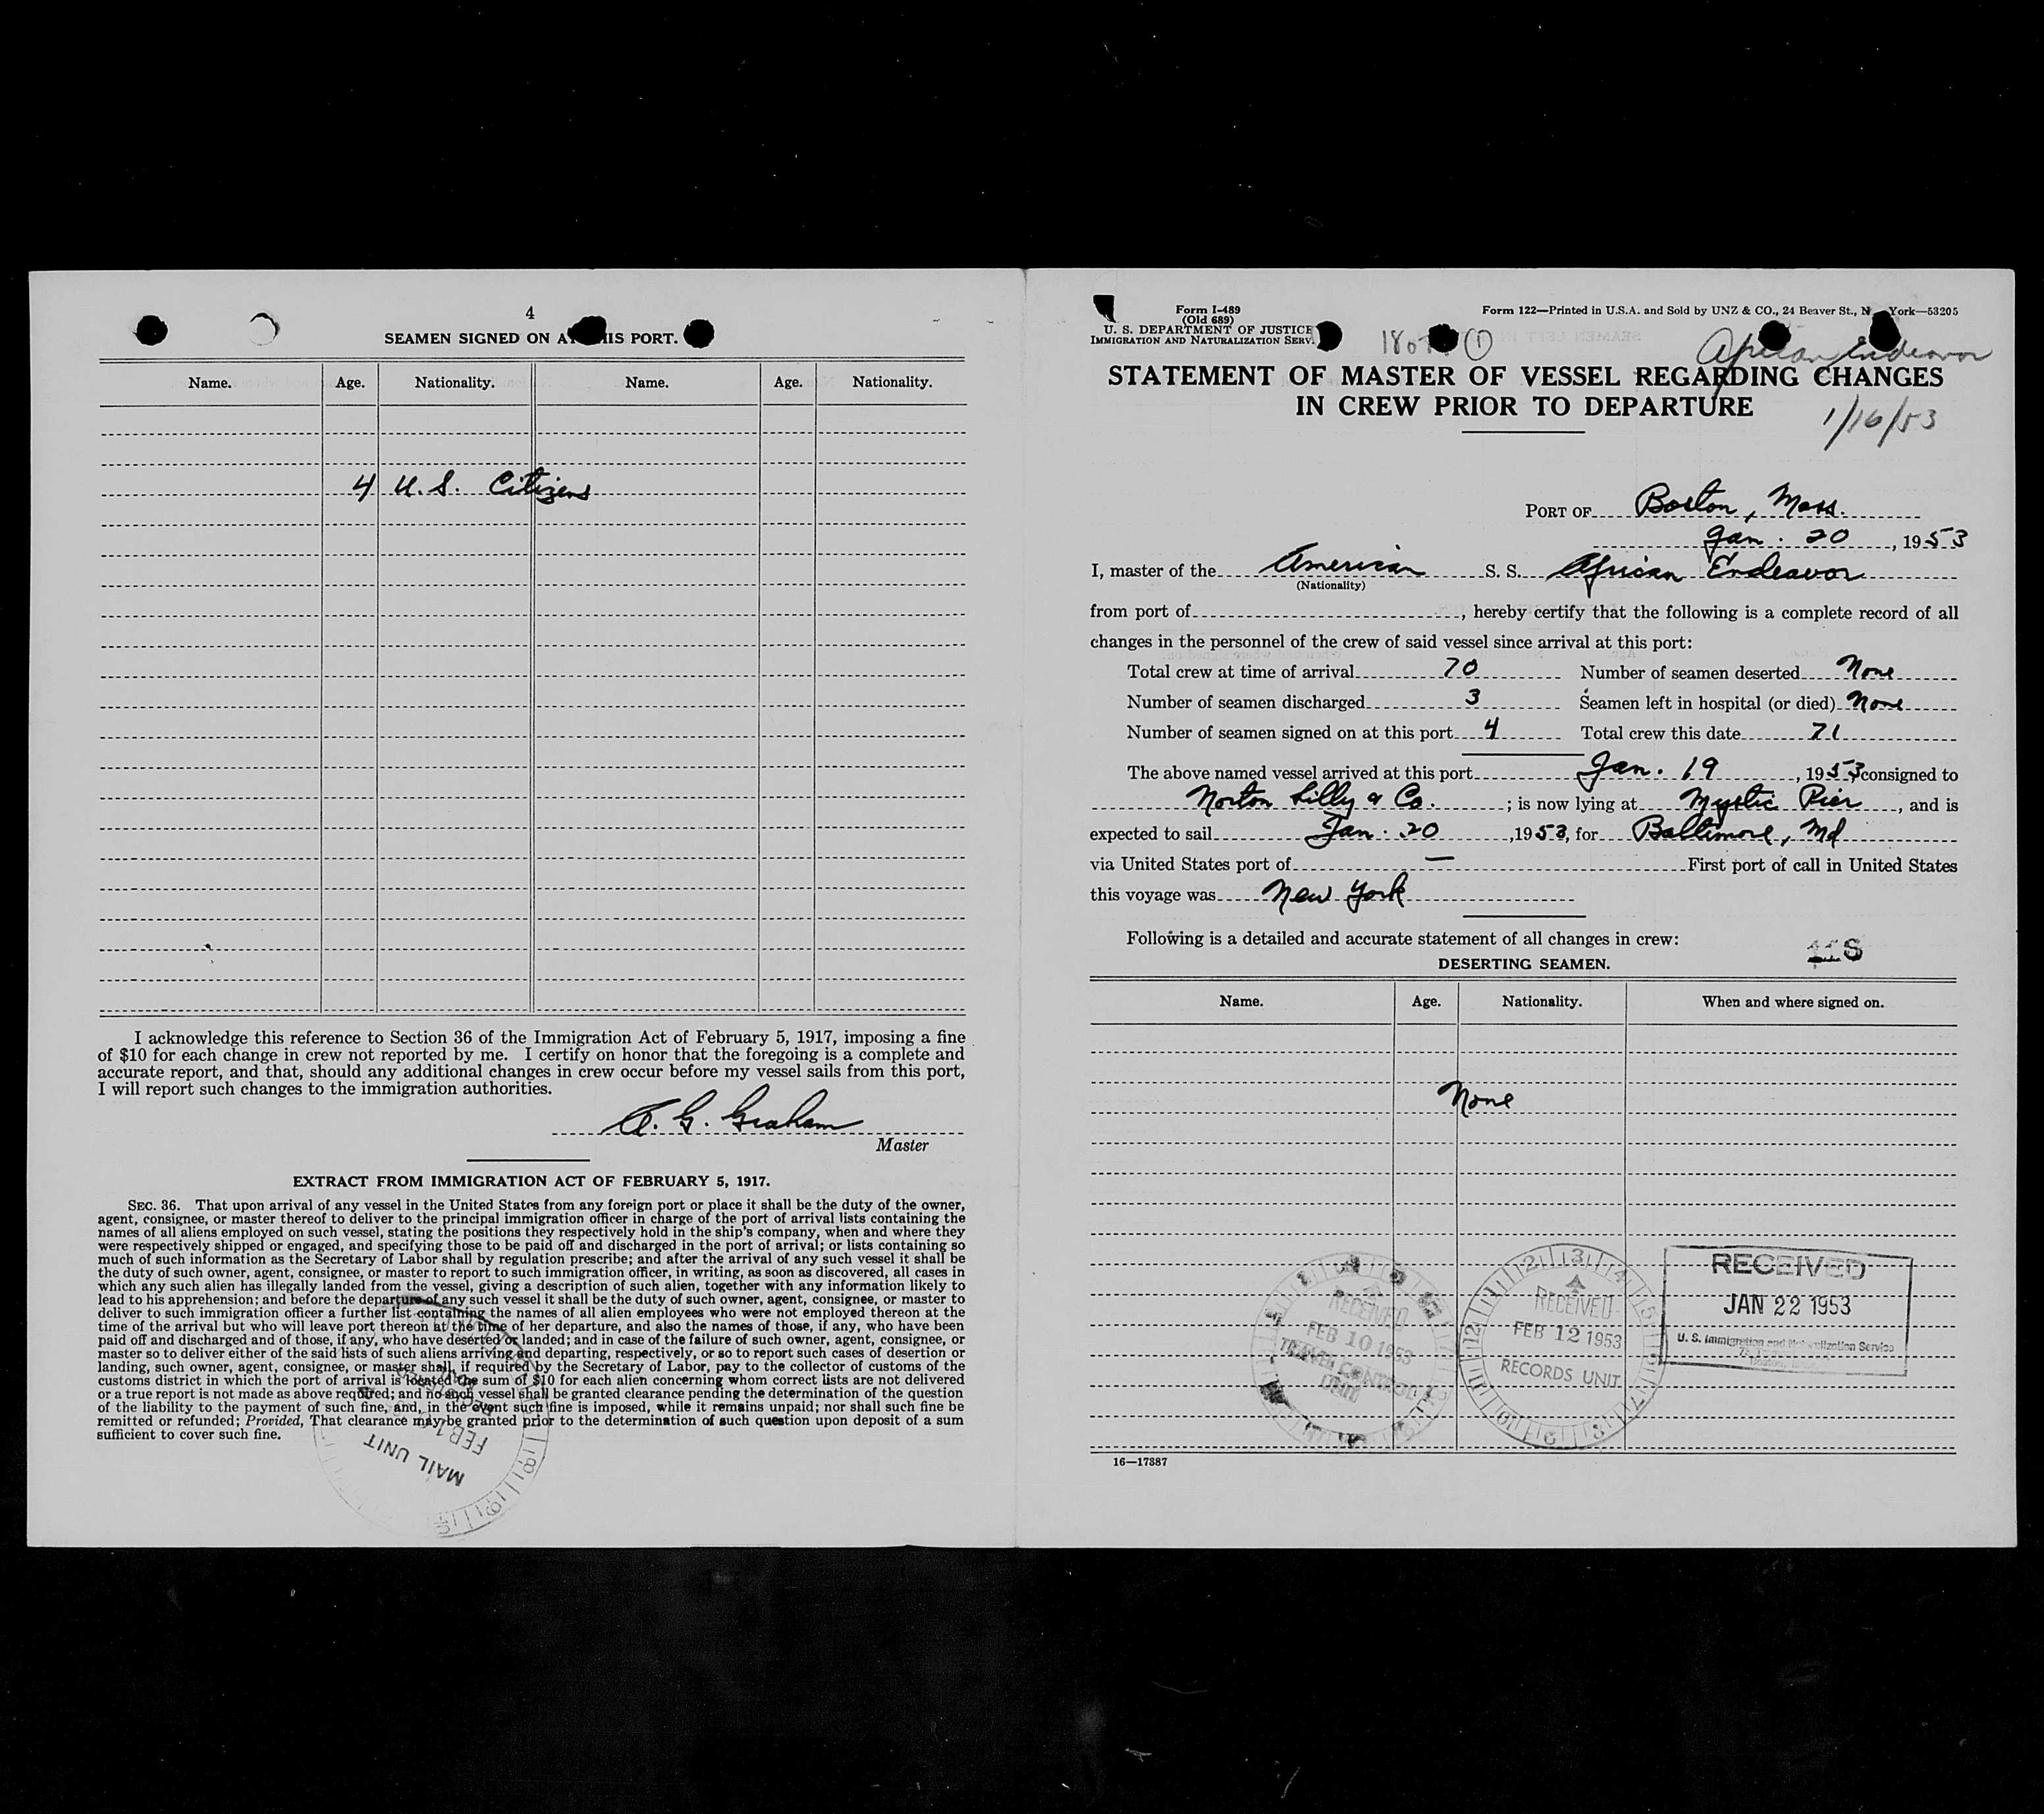 4
SEAMEN SIGNED ON AT THIS PORT.
Name. Age. Nationality. Name. Age. Nationality.
4 U. S. Citizens
I acknowledge this reference to Section 36 of the Immigration Act of February 5, 1917, imposing a fine
of $10 for each change in crew not reported by me. I certify on honor that the foregoing is a complete and
accurate report, and that, should any additional changes in crew occur before my vessel sails from this port,
I will report such changes to the immigration authorities.
A. G. Graham
Master
EXTRACT FROM IMMIGRATION ACT OF FEBRUARY 5, 1917.
SEC. 36. That upon arrival of any vessel in the United States from any foreign port or place it shall be the duty of the owner,
agent, consignee, or master thereof to deliver to the principal immigration officer in charge of the port of arrival lists containing the
names of all aliens employed on such vessel, stating the positions they respectively hold in the ship's company, when and where they
were respectively shipped or engaged, and specifying those to be paid off and discharged in the port of arrival; or lists containing so
much of such information as the Secretary of Labor shall by regulation prescribe; and after the arrival of any such vessel it shall be
the duty of such owner, agent, consignee, or master to report to such immigration officer, in writing, as soon as discovered, all cases in
which any such alien has illegally landed from the vessel, giving a description of such alien, together with any information likely to
lead to his apprehension; and before the departure of any such vessel it shall be the duty of such owner, agent, consignee, or master to
deliver to such immigration officer a further list containing the names of all alien employees who were not employed thereon at the
time of the arrival but who will leave port thereon at the time of her departure, and also the names of those, if any, who have been
paid off and discharged and of those, if any, who have deserted or landed; and in case of the failure of such owner, agent, consignee, or
master so to deliver either of the said lists of such aliens arriving and departing, respectively, or so to report such cases of desertion or
landing, such owner, agent, consignee, or master shall, if required by the Secretary of Labor, pay to the collector of customs of the
customs district in which the port of arrival is located the sum of $10 for each alien concerning whom correct lists are not delivered
or a true report is not made as above required; and no such vessel shall be granted clearance pending the determination of the question
of the liability to the payment of such fine, and, in the event such fine is imposed, while it remains unpaid; nor shall such fine be
remitted or refunded; Provided, That clearance may be granted prior to the determination of such question upon deposit of a sum
sufficient to cover such fine.
FEB
MAIL UNIT
Form I-489
(Old 689)
U. S. DEPARTMENT OF JUSTICE
IMMIGRATION AND NATURALIZATION SERV.
Form 122—Printed in U.S.A. and Sold by UNZ & CO., 24 Beaver St., N York—53205
African Endeavor
STATEMENT OF MASTER OF VESSEL REGARDING CHANGES
IN CREW PRIOR TO DEPARTURE
1/16/53
PORT OF Boston, Mass.
Jan. 20, 1953
I, master of the American S. S. African Endeavor
(Nationality)
from port of, hereby certify that the following is a complete record of all
changes in the personnel of the crew of said vessel since arrival at this port:
Total crew at time of arrival 70 Number of seamen deserted None
Number of seamen discharged 3 Seamen left in hospital (or died) None
Number of seamen signed on at this port 4 Total crew this date 71
The above named vessel arrived at this port Jan. 19, 1953 consigned to
Norton Lilly & Co. ; is now lying at Mystic Pier, and is
expected to sail Jan. 20, 1953, for Baltimore, Md
via United States port of — First port of call in United States
this voyage was New York
Following is a detailed and accurate statement of all changes in crew:
DESERTING SEAMEN.
Name. Age. Nationality. When and where signed on.
None
RECEIVED
FEB 10 1953
TRAVEL CONTROL
UNIT
RECEIVED
FEB 12 1953
RECORDS UNIT
RECEIVED
JAN 22 1953
U. S. Immigration and Naturalization Service
16—17387